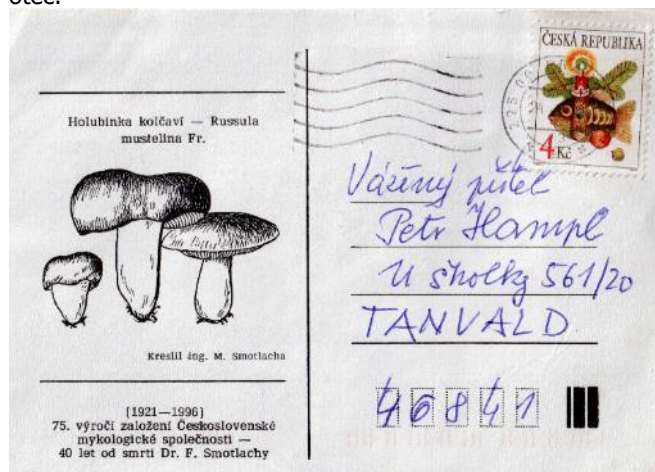 otec.
ČESKÁ REPUBLIKA
4 Kč
Holubinka kolčaví — Russula
mustelina Fr.
Kreslil ing. M. Smotlacha
(1921—1996)
75. výročí založení Československé
mykologické společnosti —
40 let od smrti Dr. F. Smotlachy
Vážený přítel
Petr Hampl
U školky 561/20
TANVALD
46841